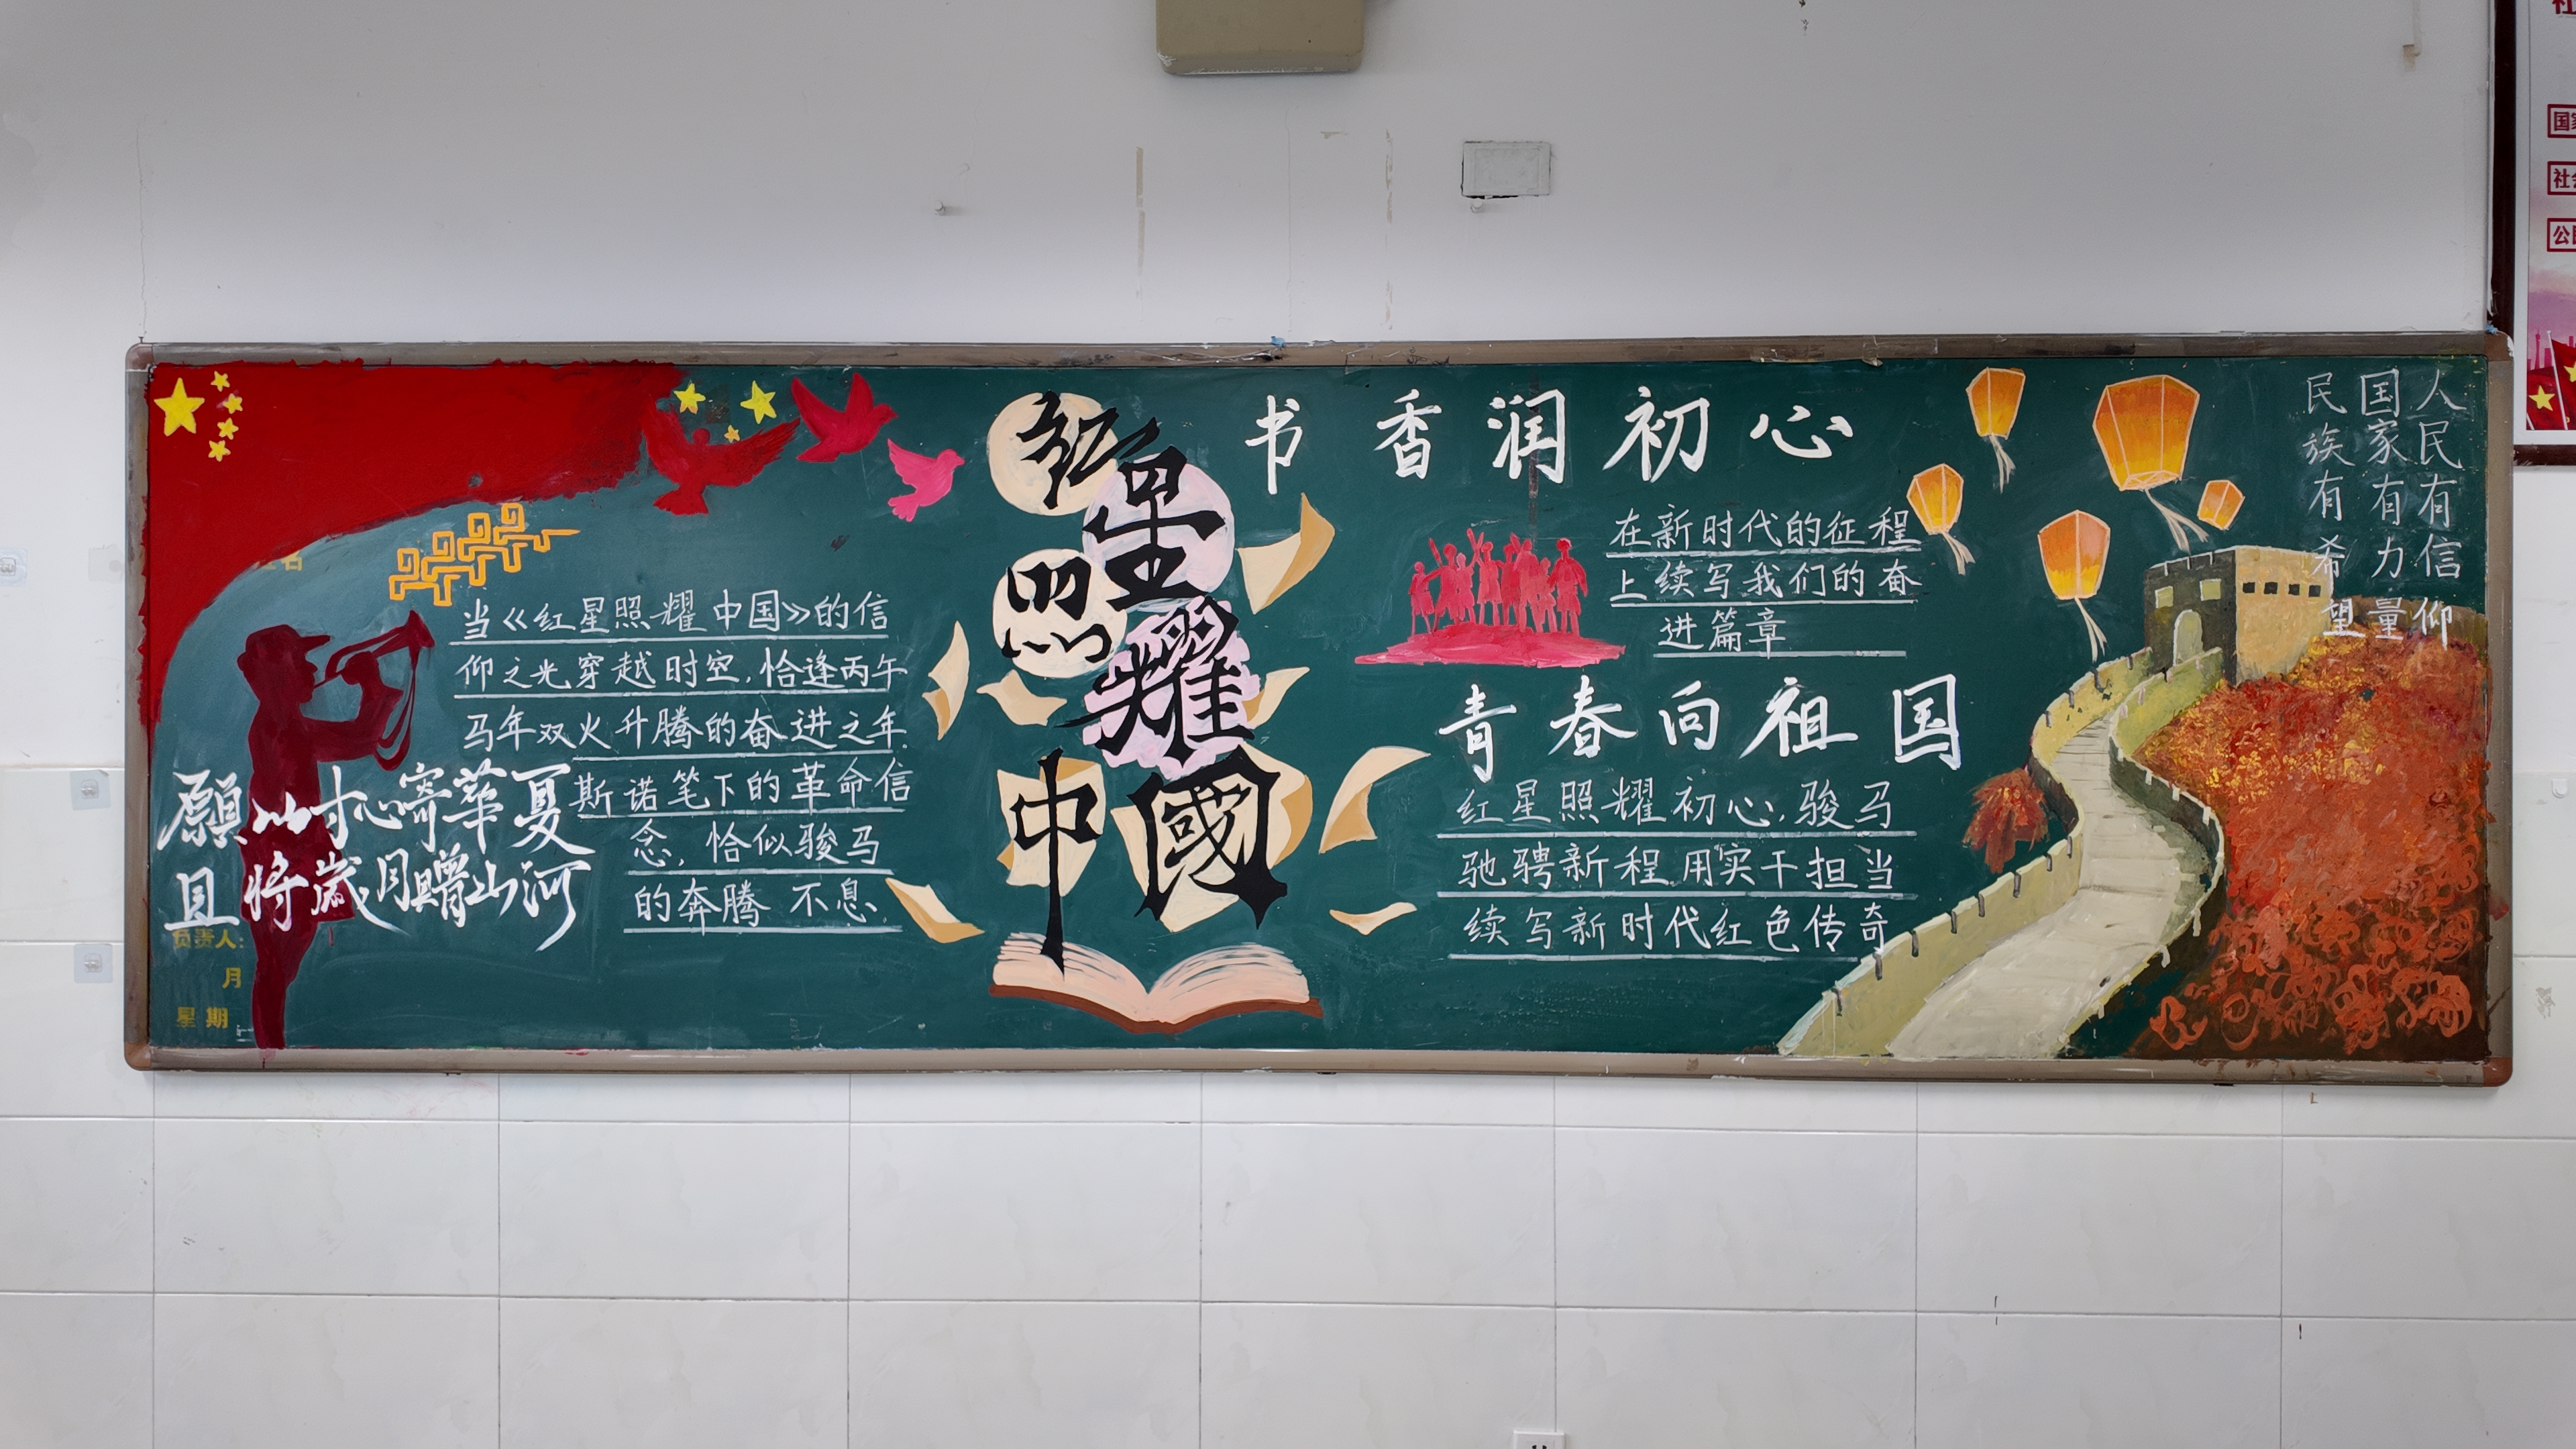 当《红星照耀中国》的信
仰之光穿越时空,恰逢丙午
马年双火升腾的奋进之年.
斯诺笔下的革命信
念,恰似骏马
的奔腾 不息.
願以寸心寄華夏
且將歲月贈山河
负责人:
月
星期
红星照耀中國
书香润初心
在新时代的征程
上续写我们的奋
进篇章
青春向祖国
红星照耀初心,骏马
驰骋新程用实干担当
续写新时代红色传奇
人民有信仰
国家有力量
民族有希望